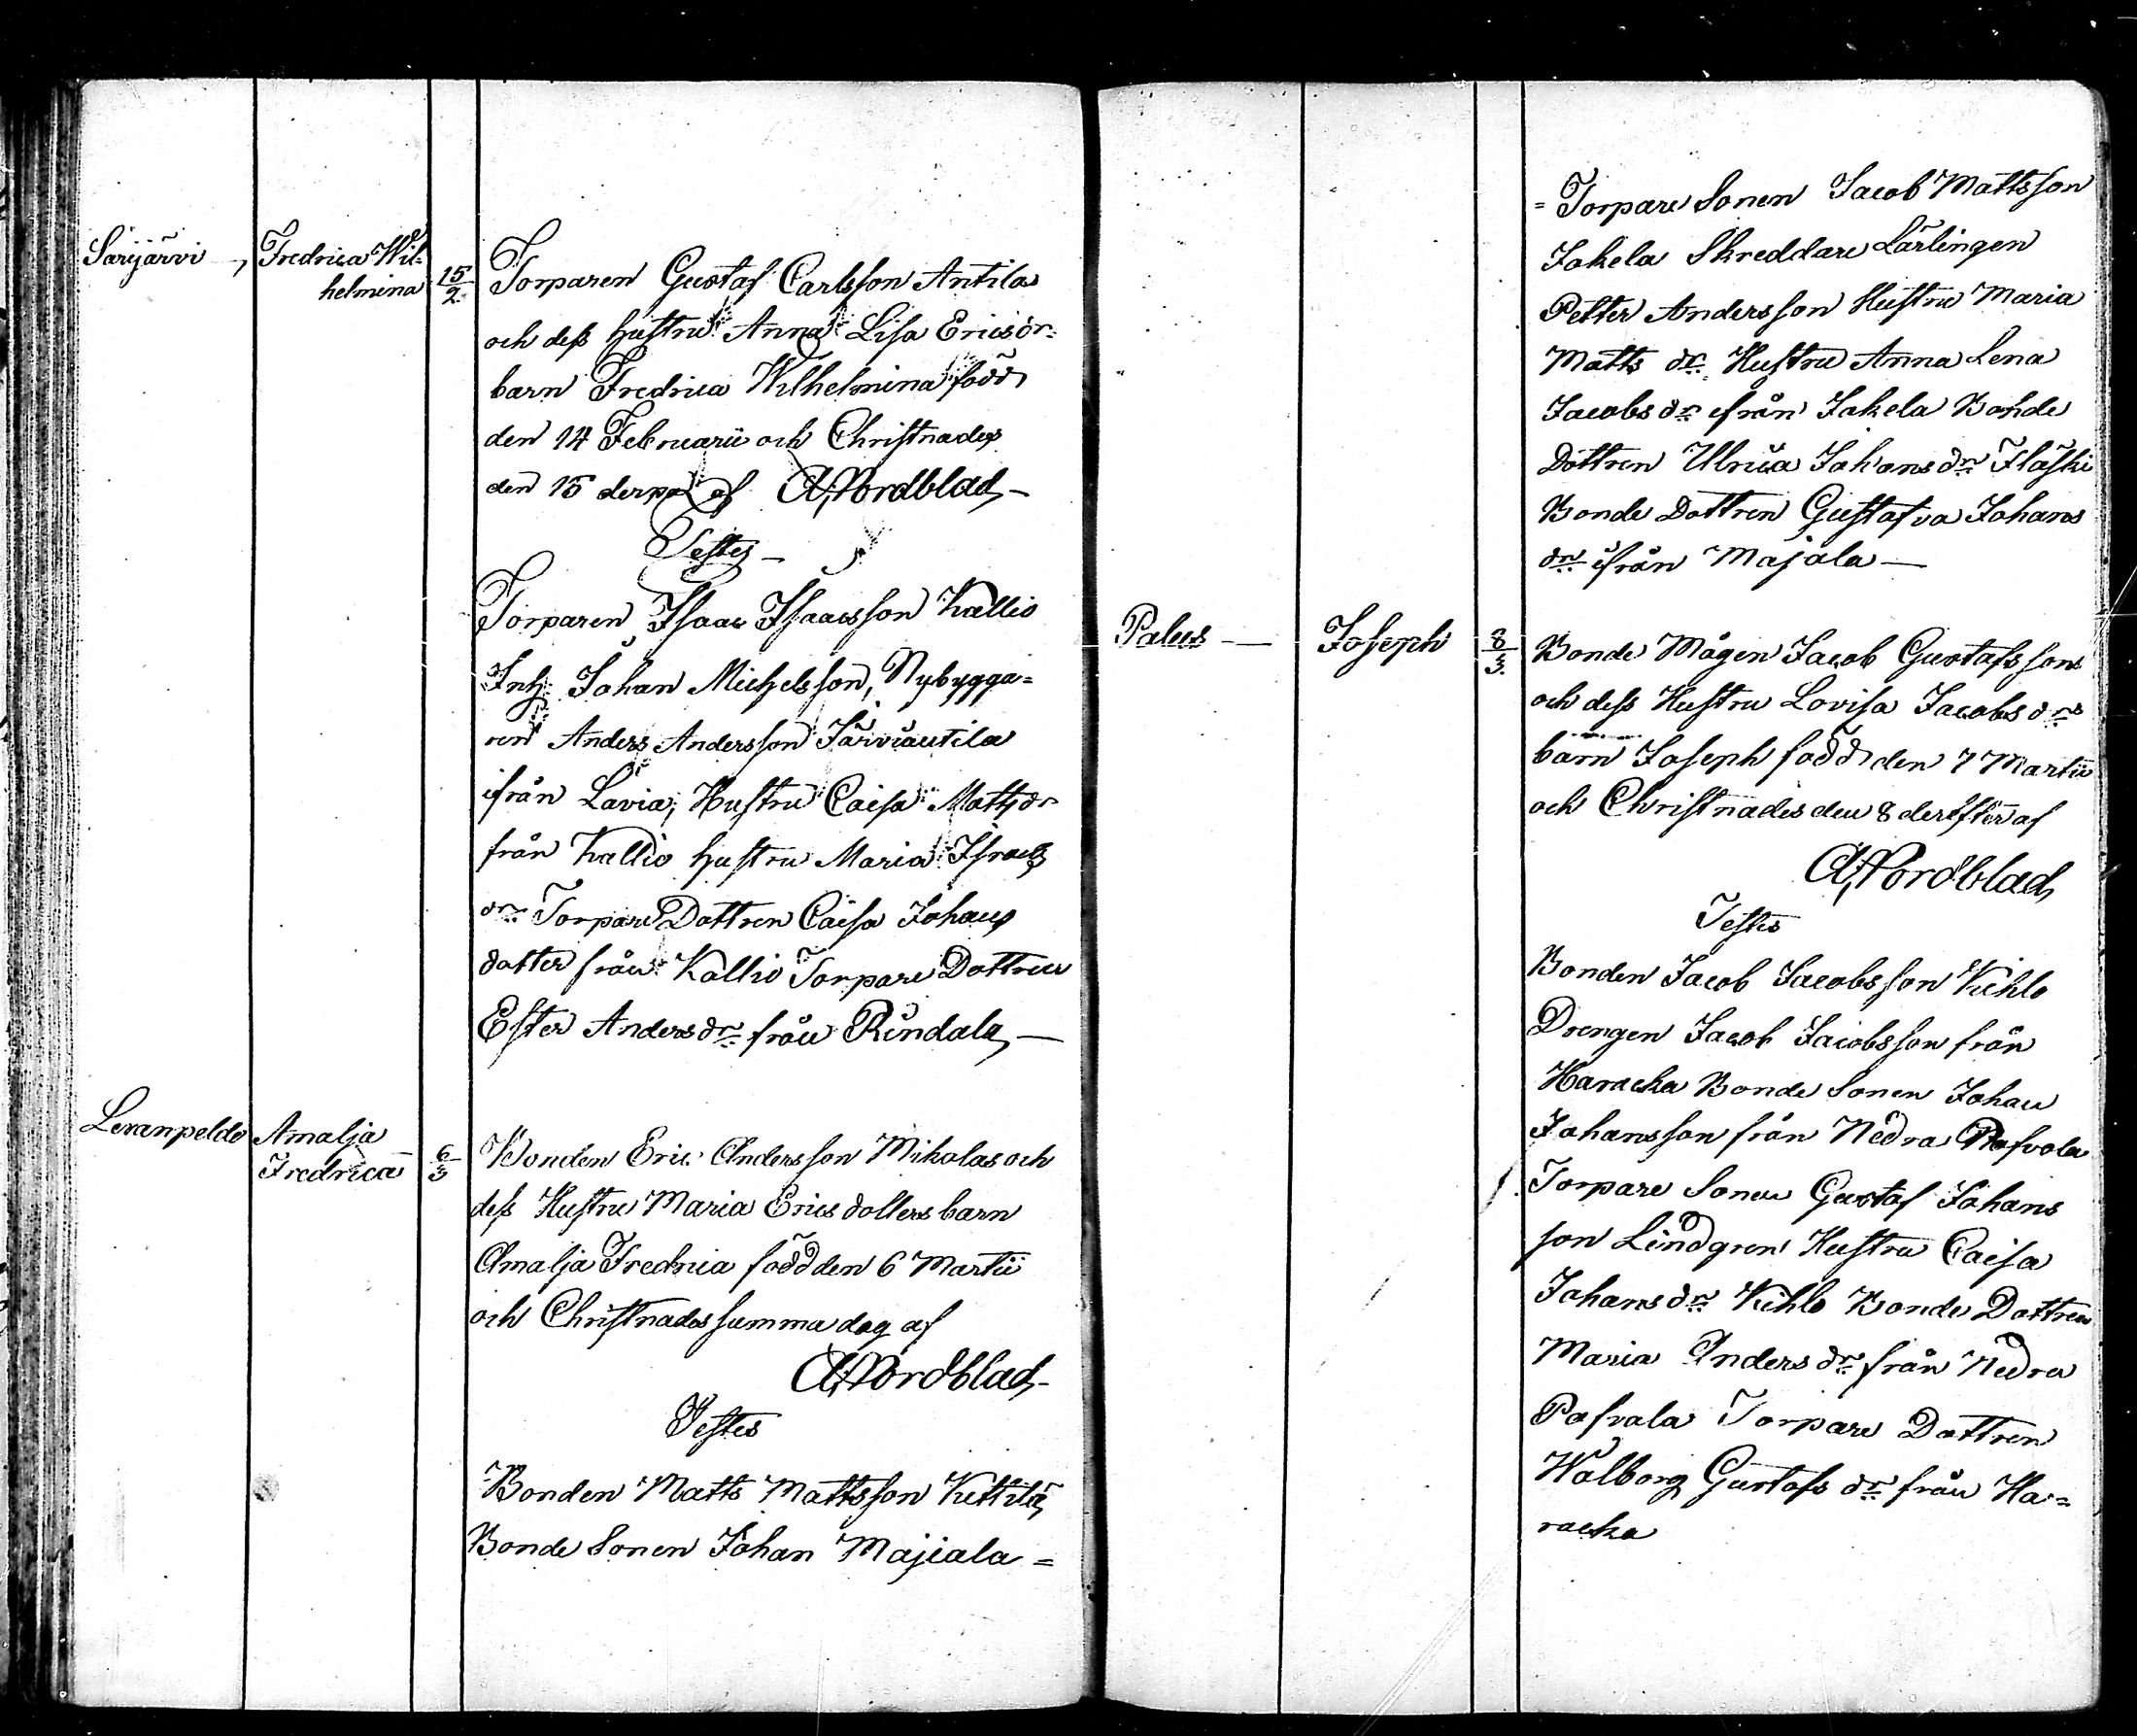 Sarijärvi — Fredrica Wil-
helmina 15/2
Torparen Gustaf Carlsson Antila
och dess hustru Anna Lisa Ericsdr
barn Fredrica Wilhelmina född
den 14 Februarii och Christnades
den 15 derpå af A Nordblad —
Testes —
Torparen Isaac Isaacsson Kallio
Inh. Johan Michelsson, Nybygga-
ren Anders Andersson Järviäutila
ifrån Lavia, Hustru Caisa Mattsdr
från Kallio hustru Maria Israels
dr Torpare Dottren Caisa Johans
dotter från Kallio Torpare Dottren
Ester Anders dr från Rindala —
Levanpeldo Amalja
Fredrica 6/3
Bonden Eric Andersson Mikolas och
dess Hustru Maria Erics dotters barn
Amalja Fredrica född den 6 Martii
och Christnades samma dag af
A Nordblad —
Testes
Bonden Matts Mattsson Kittilä
Bonde Sonen Johan Majiala =
= Torpare Sonen Jacob Mattsson
Jakela Skreddare Lärlingen
Petter Andersson Hustru Maria
Matts dr Hustru Anna Lena
Jacobs dr ifrån Jakela Bonde
Dottren Ulrica Johans dr Fläski
Bonde Dottren Gustafva Johans
dr ifrån Majala —
Palus — Joseph 8/3
Bonde Mågen Jacob Gustafssons
och dess Hustru Lovisa Jacobs drs
barn Joseph född den 7 Martii
och Christnades den 8 derefter af
A Nordblad
Testes
Bonden Jacob Jacobsson Kihlo
Drengen Jacob Jacobsson från
Haracka Bonde Sonen Johan
Johansson från Nedra Pafvola
Torpare Sonen Gustaf Johans
son Lindgren Hustru Caisa
Johans dr Kihlo Bonde Dottren
Maria Anders dr från Nedra
Pafvala Torpare Dottren
Walborg Gustafs dr från Ha-
racka